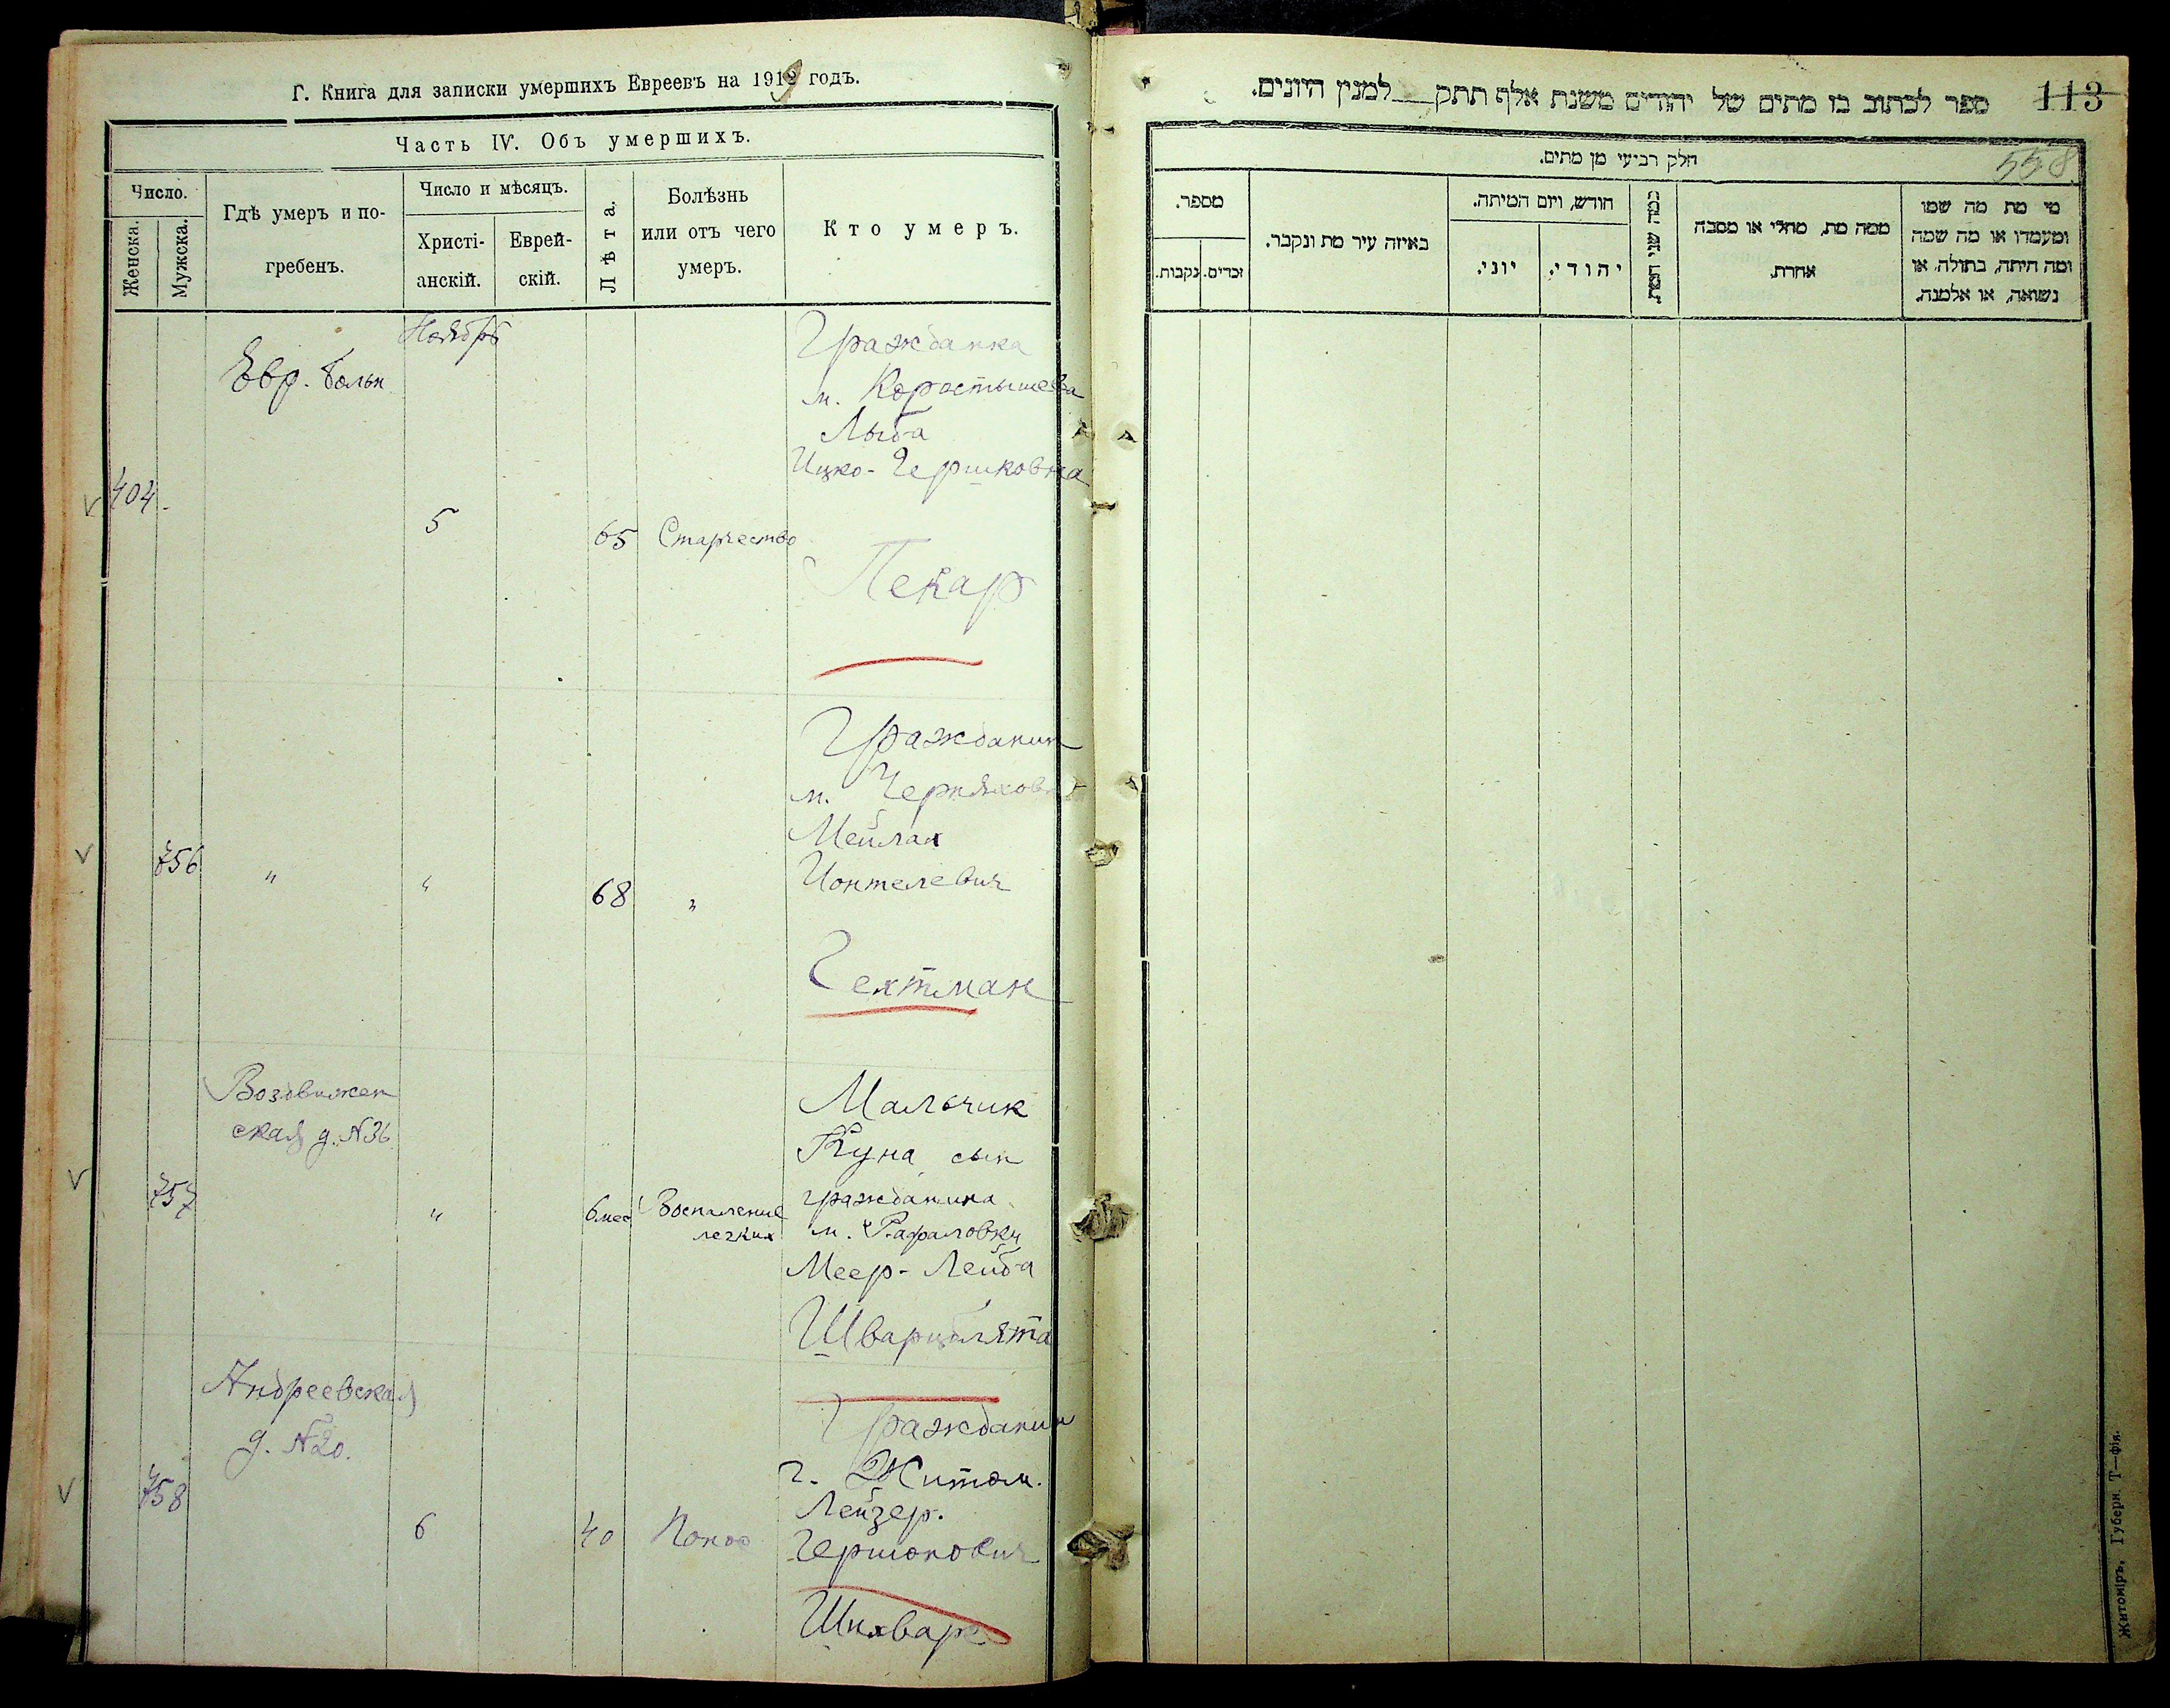 Г. Книга для записки умершихъ Евреевъ на 1919 годъ.
Часть IV. Объ умершихъ.
Число.
Женска.
Мужска.
Гдѣ умеръ и по-
гребенъ.
Число и мѣсяцъ.
Христі-
анскій.
Еврей-
скій.
Лѣта.
Болѣзнь
или отъ чего
умеръ.
Кто умеръ.
Ноябрь
Евр. больн
404.
5
65
Старчество
Гражданка
м. Коростышева
Лыба
Ицко-Гершковна
Пекар
756
"
"
68
"
Гражданин
м. Черняхова
Мейлах
Ионтелевич
Гехтман
Воздвижен
ская д. N36
757
"
6 мес
Воспаление
легких
Мальчик
Куна сын
гражданина
м. Рафаловки
Меер-Лейба
Шварцблята
Андреевская
д. N20.
758
6
40
Гражданин
г. Житом.
Лейзер.
Гершонович
ספר לכתוב בו מתים של יהודים משנת אלף תתק למנין היונים.
113
558
חלק רביעי מן מתים.
מספר.
נקבות.
זכרים.
באיזה עיר מת ונקבר.
חודש, ויום המיתה.
יוני.
יהודי.
כמה שני המת.
ממה מת, מחלי או מסבה
אחרת.
מי מת מה שמו
ומעמדו או מה שמה
ומה היתה, בתולה, או
נשואה, או אלמנה.
Житоміръ, Губерн. Т—фія.